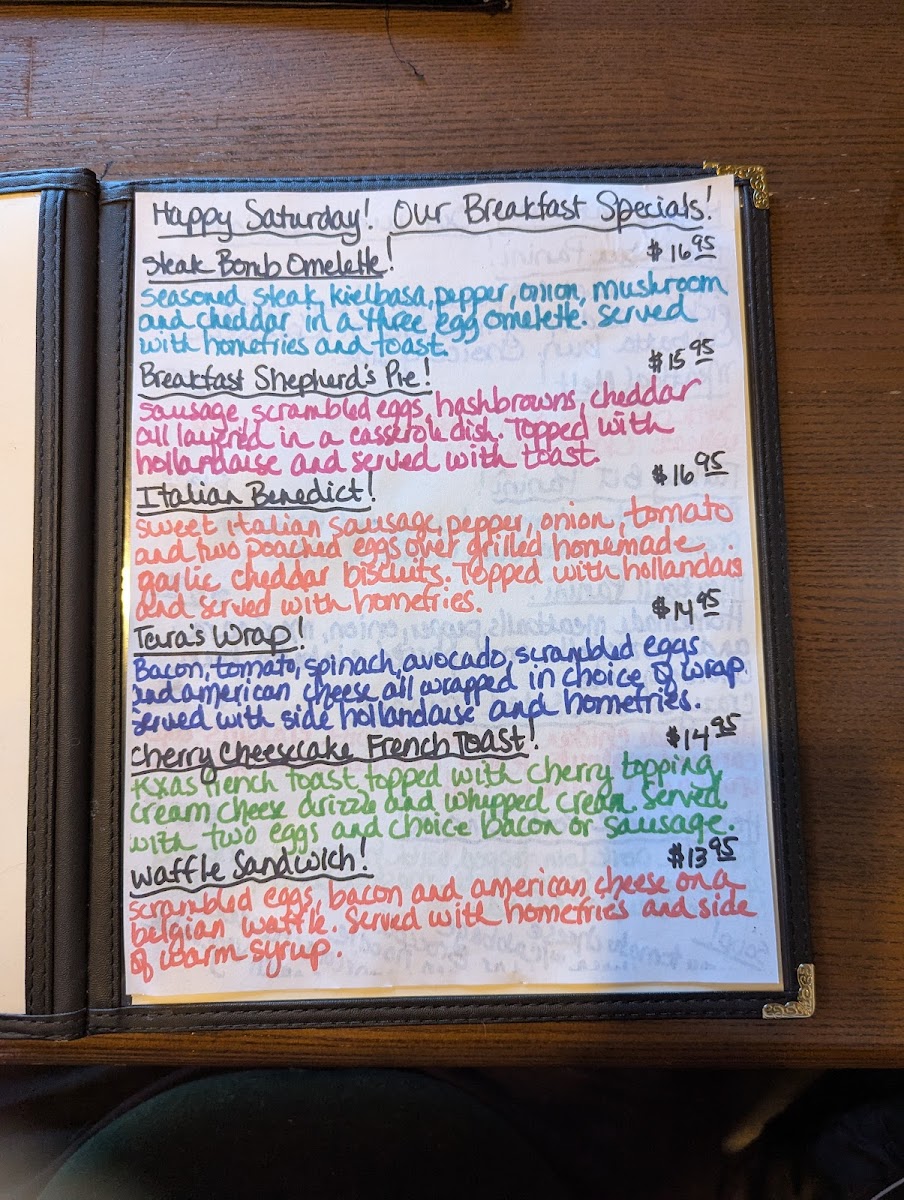 Happy Saturday! Our Breakfast Specials!
Steak Bomb Omelette! $16 95
Seasoned steak, kielbasa, pepper, onion, mushroom
and cheddar in a three egg omelette. Served
with homefries and toast.
Breakfast Shepherd's Pie! $15 95
Sausage, scrambled eggs, hashbrowns, cheddar
all layered in a casserole dish. Topped with
hollandaise and served with toast.
Italian Benedict! $16 95
Sweet Italian sausage, pepper, onion, tomato
and two poached eggs over grilled homemade
garlic cheddar biscuits. Topped with hollandais
and served with homefries.
Tara's Wrap! $14 95
Bacon, tomato, spinach, avocado, scrambled eggs
and american cheese all wrapped in choice of wrap
served with side hollandaise and homefries.
Cherry Cheesecake French Toast! $14 95
texas french toast topped with cherry topping,
cream cheese drizzle and whipped cream. Served
with two eggs and choice bacon or sausage.
Waffle Sandwich! $13 95
scrambled eggs, bacon and american cheese on a
belgian waffle. Served with homefries and side
of warm syrup.